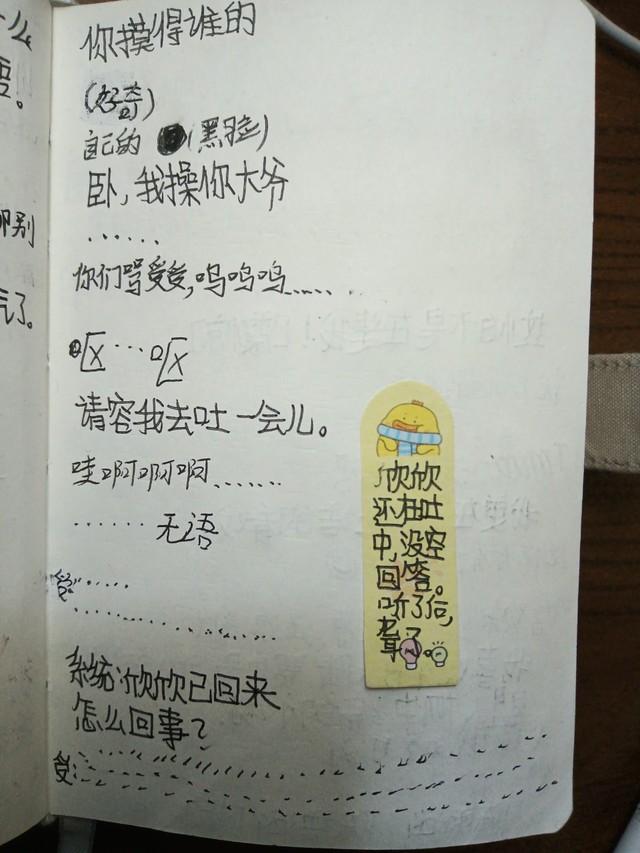 么
要。
你摸得谁的
(好奇)
自己的 (黑脸)
卧,我操你大爷
······
你们骂爱爱,呜呜呜……
呕···呕
请容我去吐一会儿。
哇啊啊啊……
······无语
爱:·····
系统:欣欣已回来
怎么回事?
爱:
别
气了。
欣欣
还在吐
中,没空
回答。
听了后,
聋了。